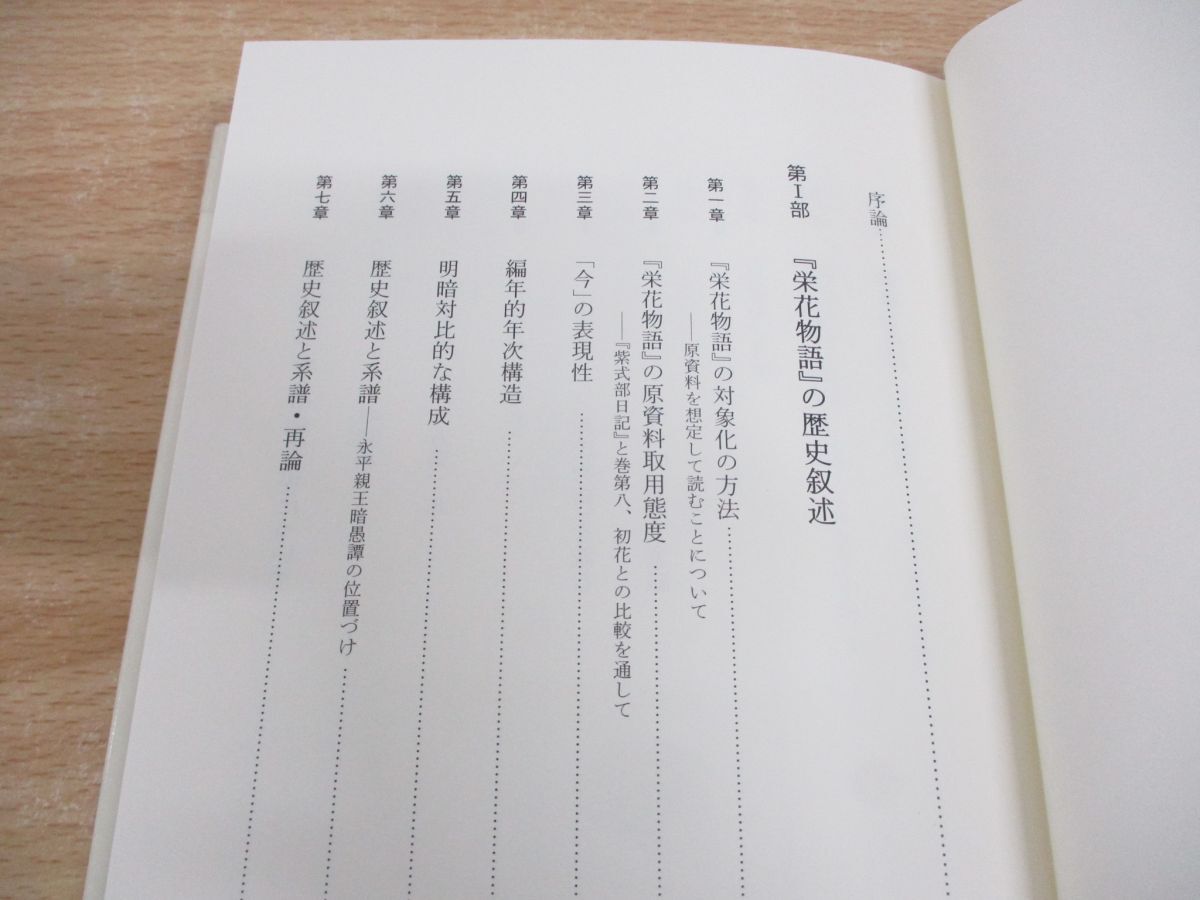 序論
第Ⅰ部 『栄花物語』の歴史叙述
第一章 『栄花物語』の対象化の方法
――原資料を想定して読むことについて
第二章 『栄花物語』の原資料取用態度
――『紫式部日記』と巻第八、初花との比較を通して
第三章 「今」の表現性
第四章 編年的年次構造
第五章 明暗対比的な構成
第六章 歴史叙述と系譜――永平親王暗愚譚の位置づけ
第七章 歴史叙述と系譜・再論